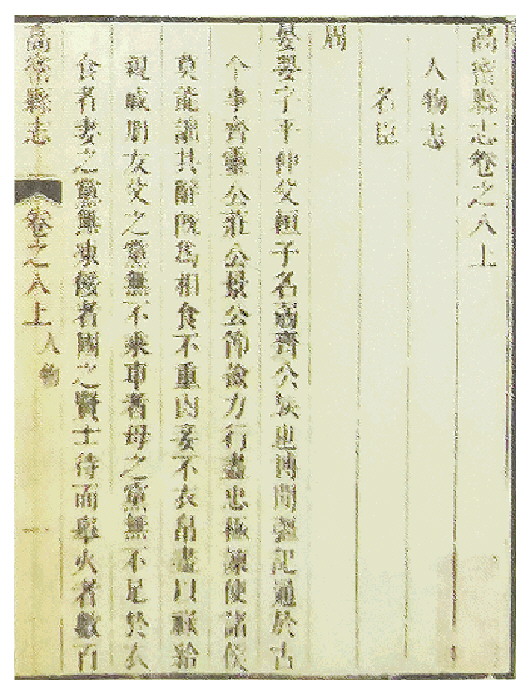 高密縣志卷之八上
人物志
名臣
周
晏嬰字平仲父桓子名弱齊公族也博聞強記通於古
今事齊靈公莊公景公節儉力行盡忠極諫使諸侯
莫能詘其辭既爲相食不重肉妾不衣帛盡以祿給
親戚朋友父之黨無不乘車者母之黨無不足於衣
食者妻之黨無凍餒者國之賢士待而舉火者數百
高密縣志 卷之八上 人物 一